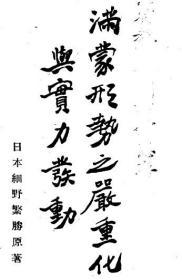 滿蒙形勢之嚴重化
與實力發動
日本細野繁勝原著